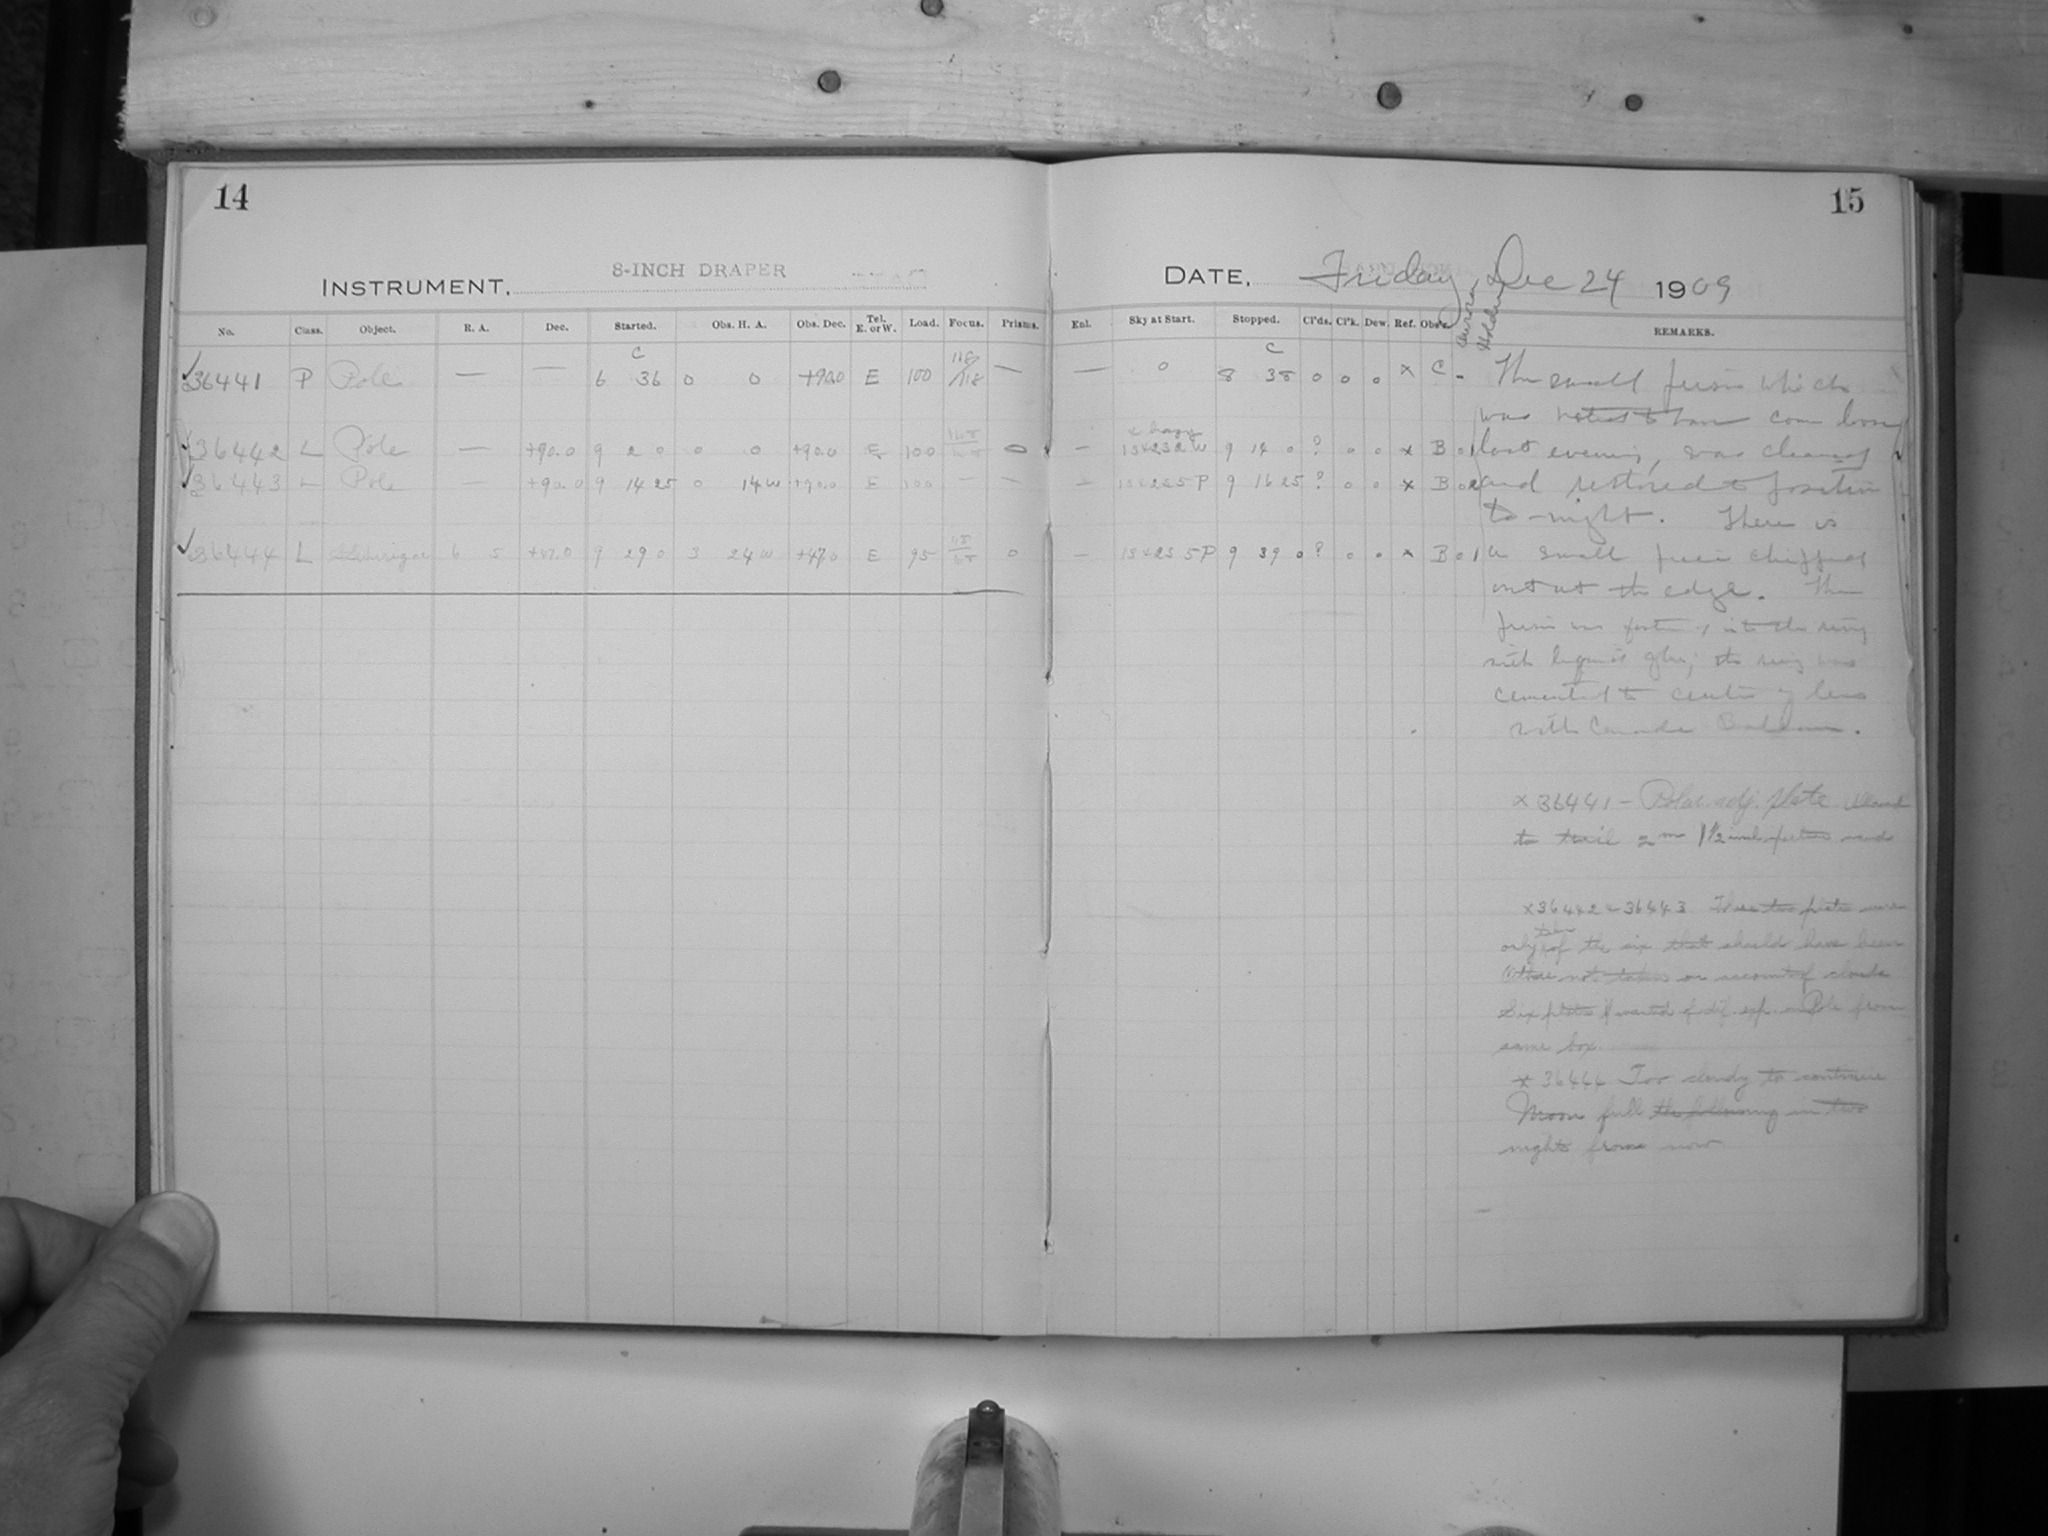 14
15
INSTRUMENT, 8-INCH DRAPER
DATE, Friday Dec 24 1909
No. Class. Object. R. A. Dec. Started. Obs. H. A. Obs. Dec. Tel. E. or W. Load. Focus. Prisms.
Enl. Sky at Start. Stopped. Cl'ds. Cl'k. Dew. Ref. Obs'r. REMARKS.
36441 P Pole — — 6 36 0 0 +90.0 E 100 118/118 —
— 0 8 38 0 0 0 x C.
36442 L Pole — +90.0 9 2 0 0 0 +90.0 E 100 0
— 9 14 0 ? 0 0 x B
36443 L Pole — +90.0 9 14 25 0 14w +90.0 E 100 — —
— 9 16 25 ? 0 0 x B
36444 L 6 5 +47.0 9 29 0 3 24w +47.0 E 95 0
— 9 39 0 ? 0 0 x B
The small prism which
was noticed to have come loose
last evening, was cleaned
and restored to position
to-night. There is
a small piece chipped
out at the edge. The
prism was fastened into the ring
with liquid glue; the ring was
cemented to center of lens
with Canada Balsam.
x 36441 – Polar adj. plate
to trail 2m 1 1/2 inch
x 36442 – 36443 These two plates were
only taken of the six that should have been
Others not taken on account of clouds
Six plates wanted of dif. exp. on Pole from
same box
x 36444 Too cloudy to continue
Moon full the following in two
nights from now